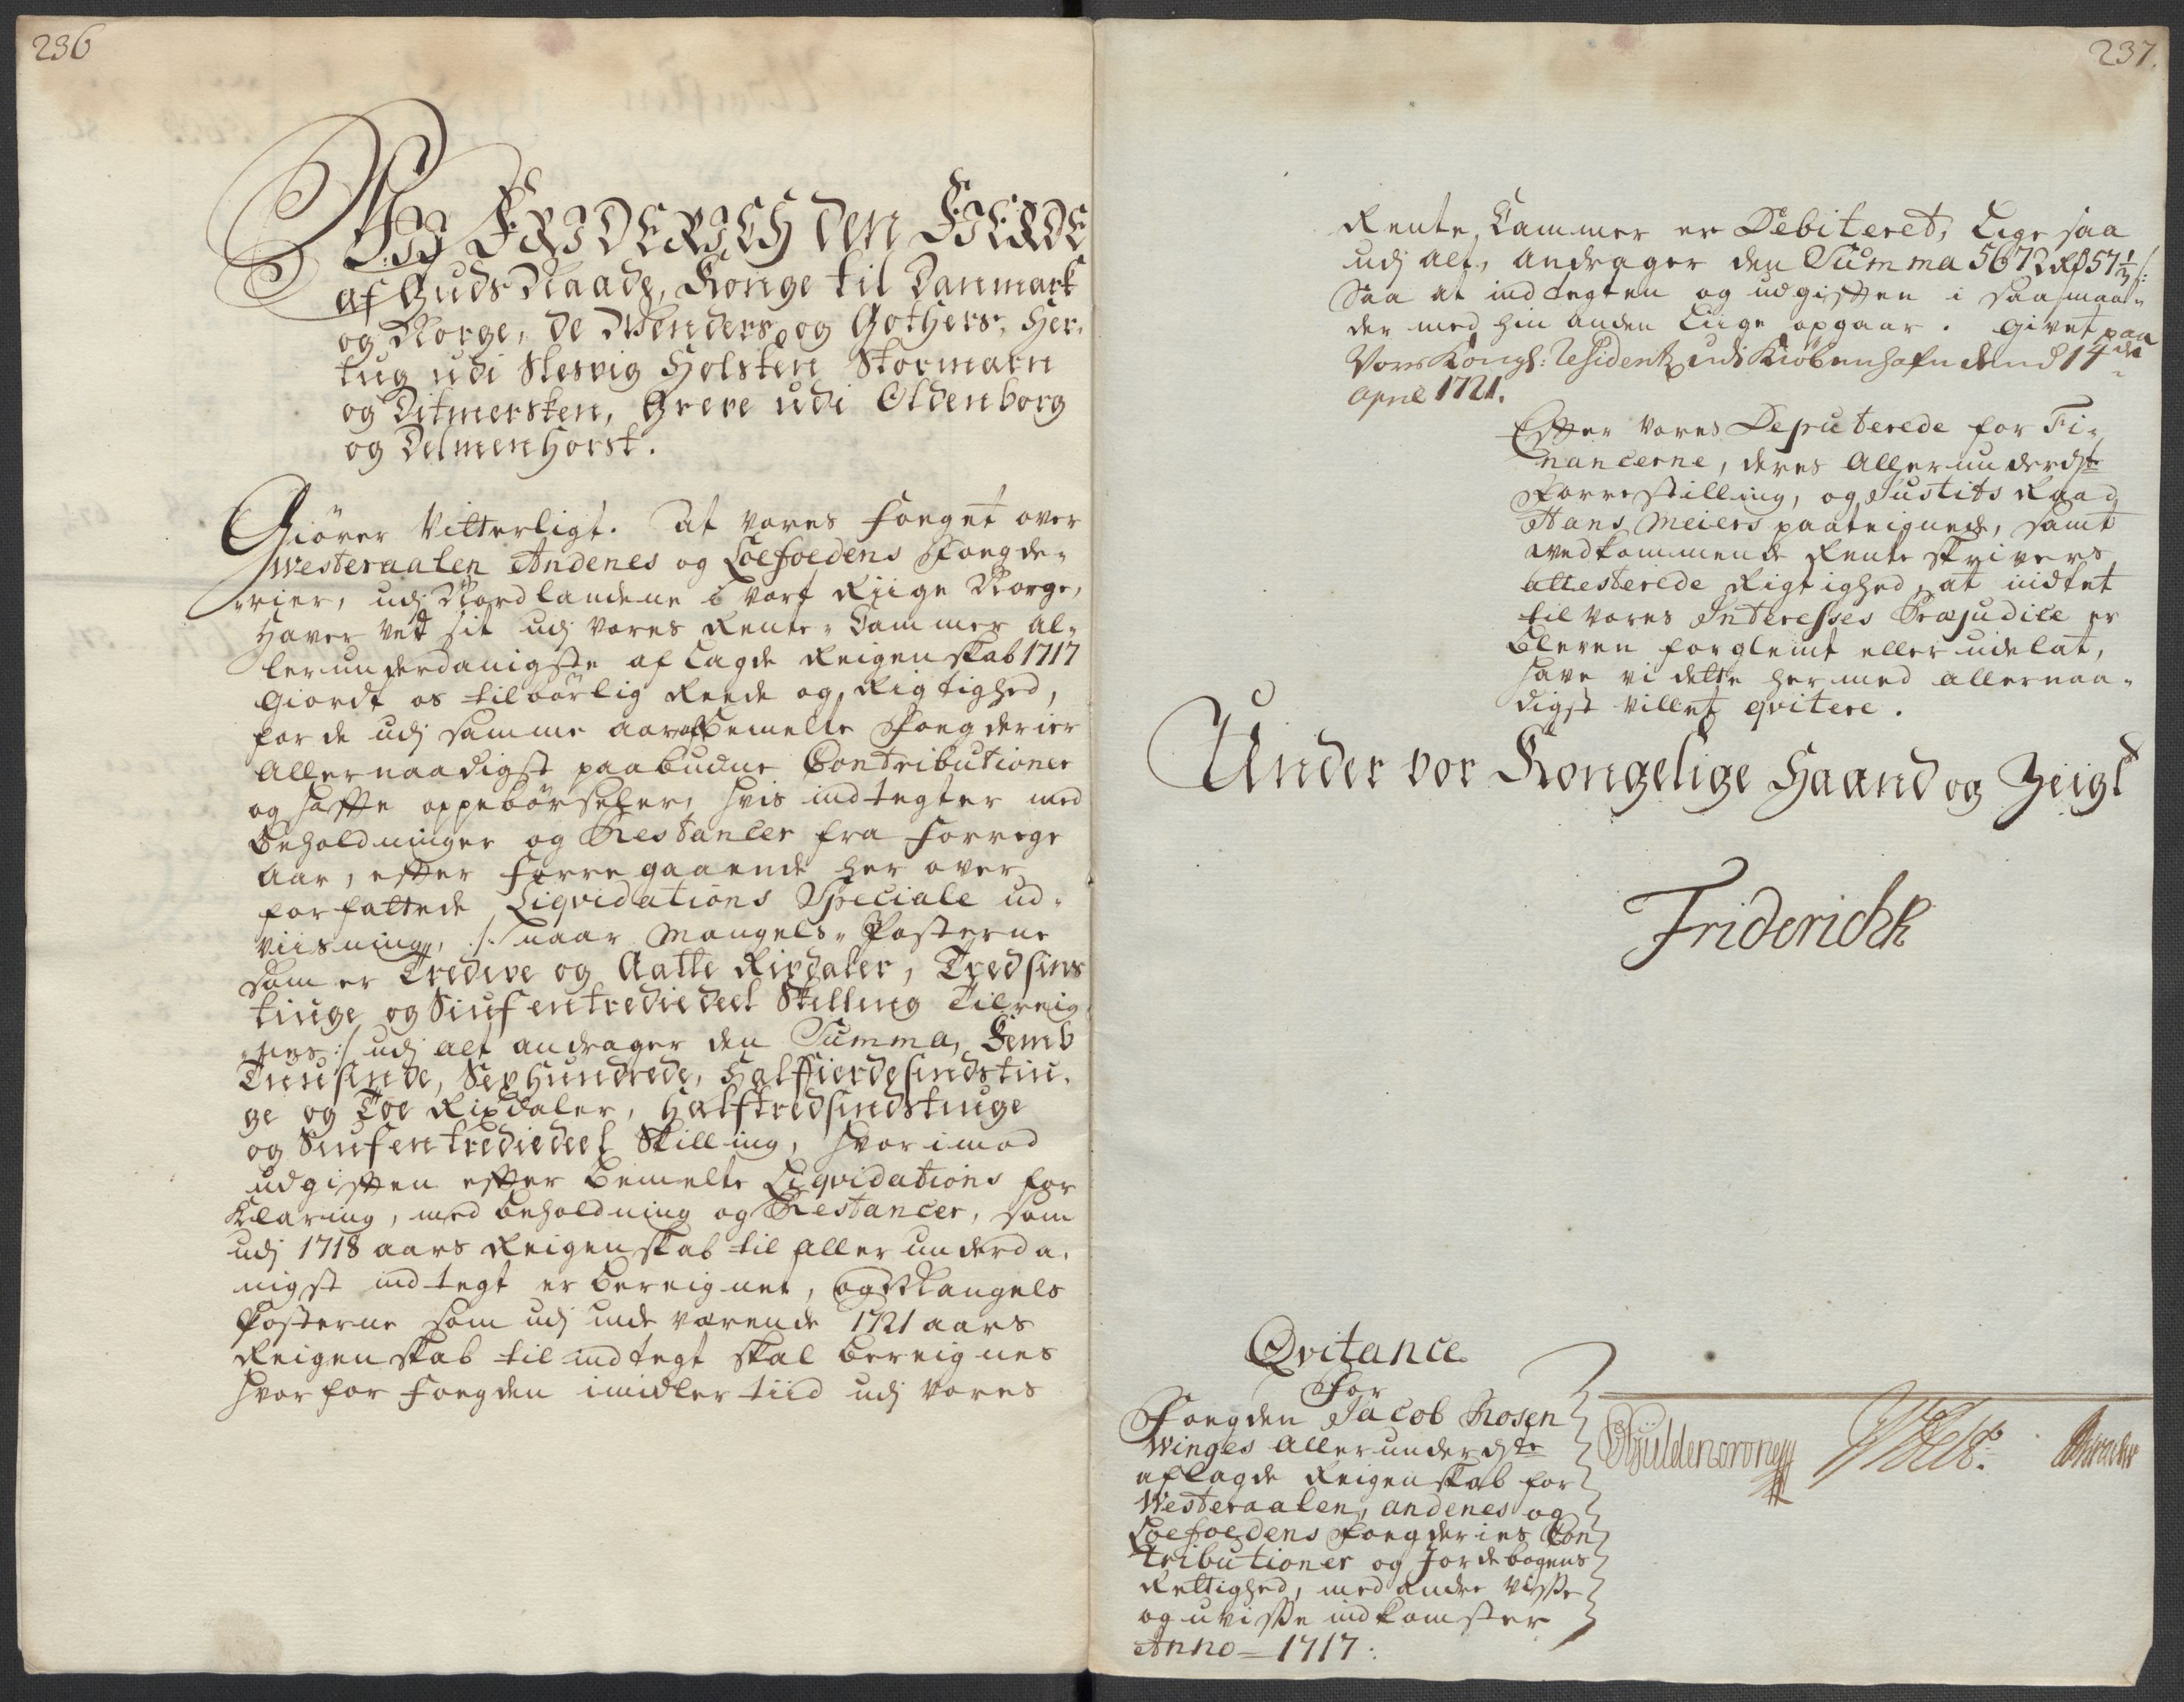 236
Wii FRIDERICH den FIERDE
af Guds Naade, Konge til Danmark
og Norge, de Wenders og Gothers, Her-
tug udi Slesvig Holsten Stormarn
og Ditmersken, Greve udi Oldenborg
og Delmenhorst.
Giörer Vitterligt. At vores Foeget over
Westeraalen Andenes og Loefoedens Foegde-
rier, udj Nordlandene i vort Riige Norge,
Haver ved sit udj vores Rente-Cammer al-
lerunderdanigste aflagde Reigenskab 1717
giordt os tilbörlig Reede og Rigtighed,
for de udj samme aar af bemelte Foegderier
Allernaadigst paabudne Contributioner
og hafte oppebörseler, hvis indtegter med
Beholdninger og Restancer fra forrege
Aar, efter forregaaende her over
forfattede Liqvidations Speciale ud-
viisning, /: naar Mangels-Posterne
som er Tredive og Aatte Rixdaler, Tredsins
tiuge og Siuf entrediedeel Skilling Tilreig-
nes :/ udj alt andrager den Summa, Femb
Tuusinde, Sex Hundrede, Halffierdesindstiu-
ge og Toe Rixdaler, Halftredsindstiuge
og Siuf en trediedeel Skilling, hvorimod
udgiften efter bemelte Liqvidations for
Klaring, med beholdning og Restancer, som
udj 1718 aars Reigenskab til allerunderda-
nigst indtegt er bereignet, og Mangels
Posterne som udj inde værende 1721 aars
Reigenskab til indtegt skal bereignes
hvorfor Foegden imidlertiid udj vores
237.
Rente Cammer er Debiteret, Lige saa
udj alt, andrager den Summa 5672 Rd 57 1/3 s:
Saa at indtegten og udgiften i saa maa-
der med hin anden Liige opgaar. Givet paa
Vores Kongl: Residentz udi Kiöbenhafn dend 14de
April 1721.
Efter vores Deputerede for Fi-
nancerne, deres Allerunderdste
Forrestilling, og Justits Raad
Hans Meiers paateignede, samt
vedkommende Rente skrivers
attesterede Rigtighed, at intet
til vores Interesses Præjudice er
bleven forglemt eller udelat,
have vi dette hermed allernaa-
digst villet qvitere.
Under vor Kongelige Haand og Zeigl
Friderich R
Qvitance
For
Foegden Jacob Rosen
Winges Allerunderdste
aflagde Reigenskab for
Westeraalen, Andenes og
Loefoedens Foegderies Con
tributioner og Jordebogens
Rettighed, med andre visse
og uvisse indkomster
Anno = 1717:
Gyldencrone